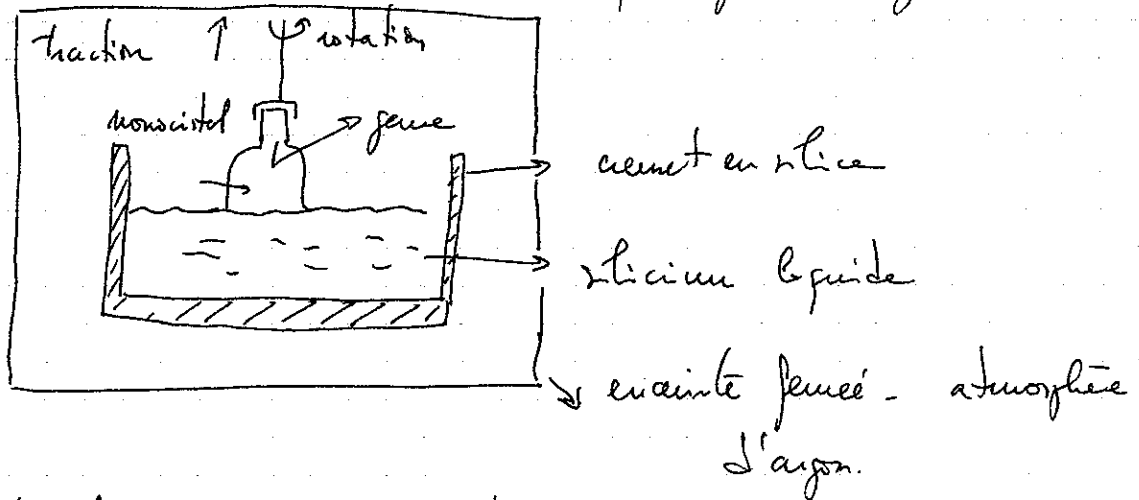 traction rotation
monocristal germe
creuset en silice
silicium liquide
enceinte fermée - atmosphère
d'argon.